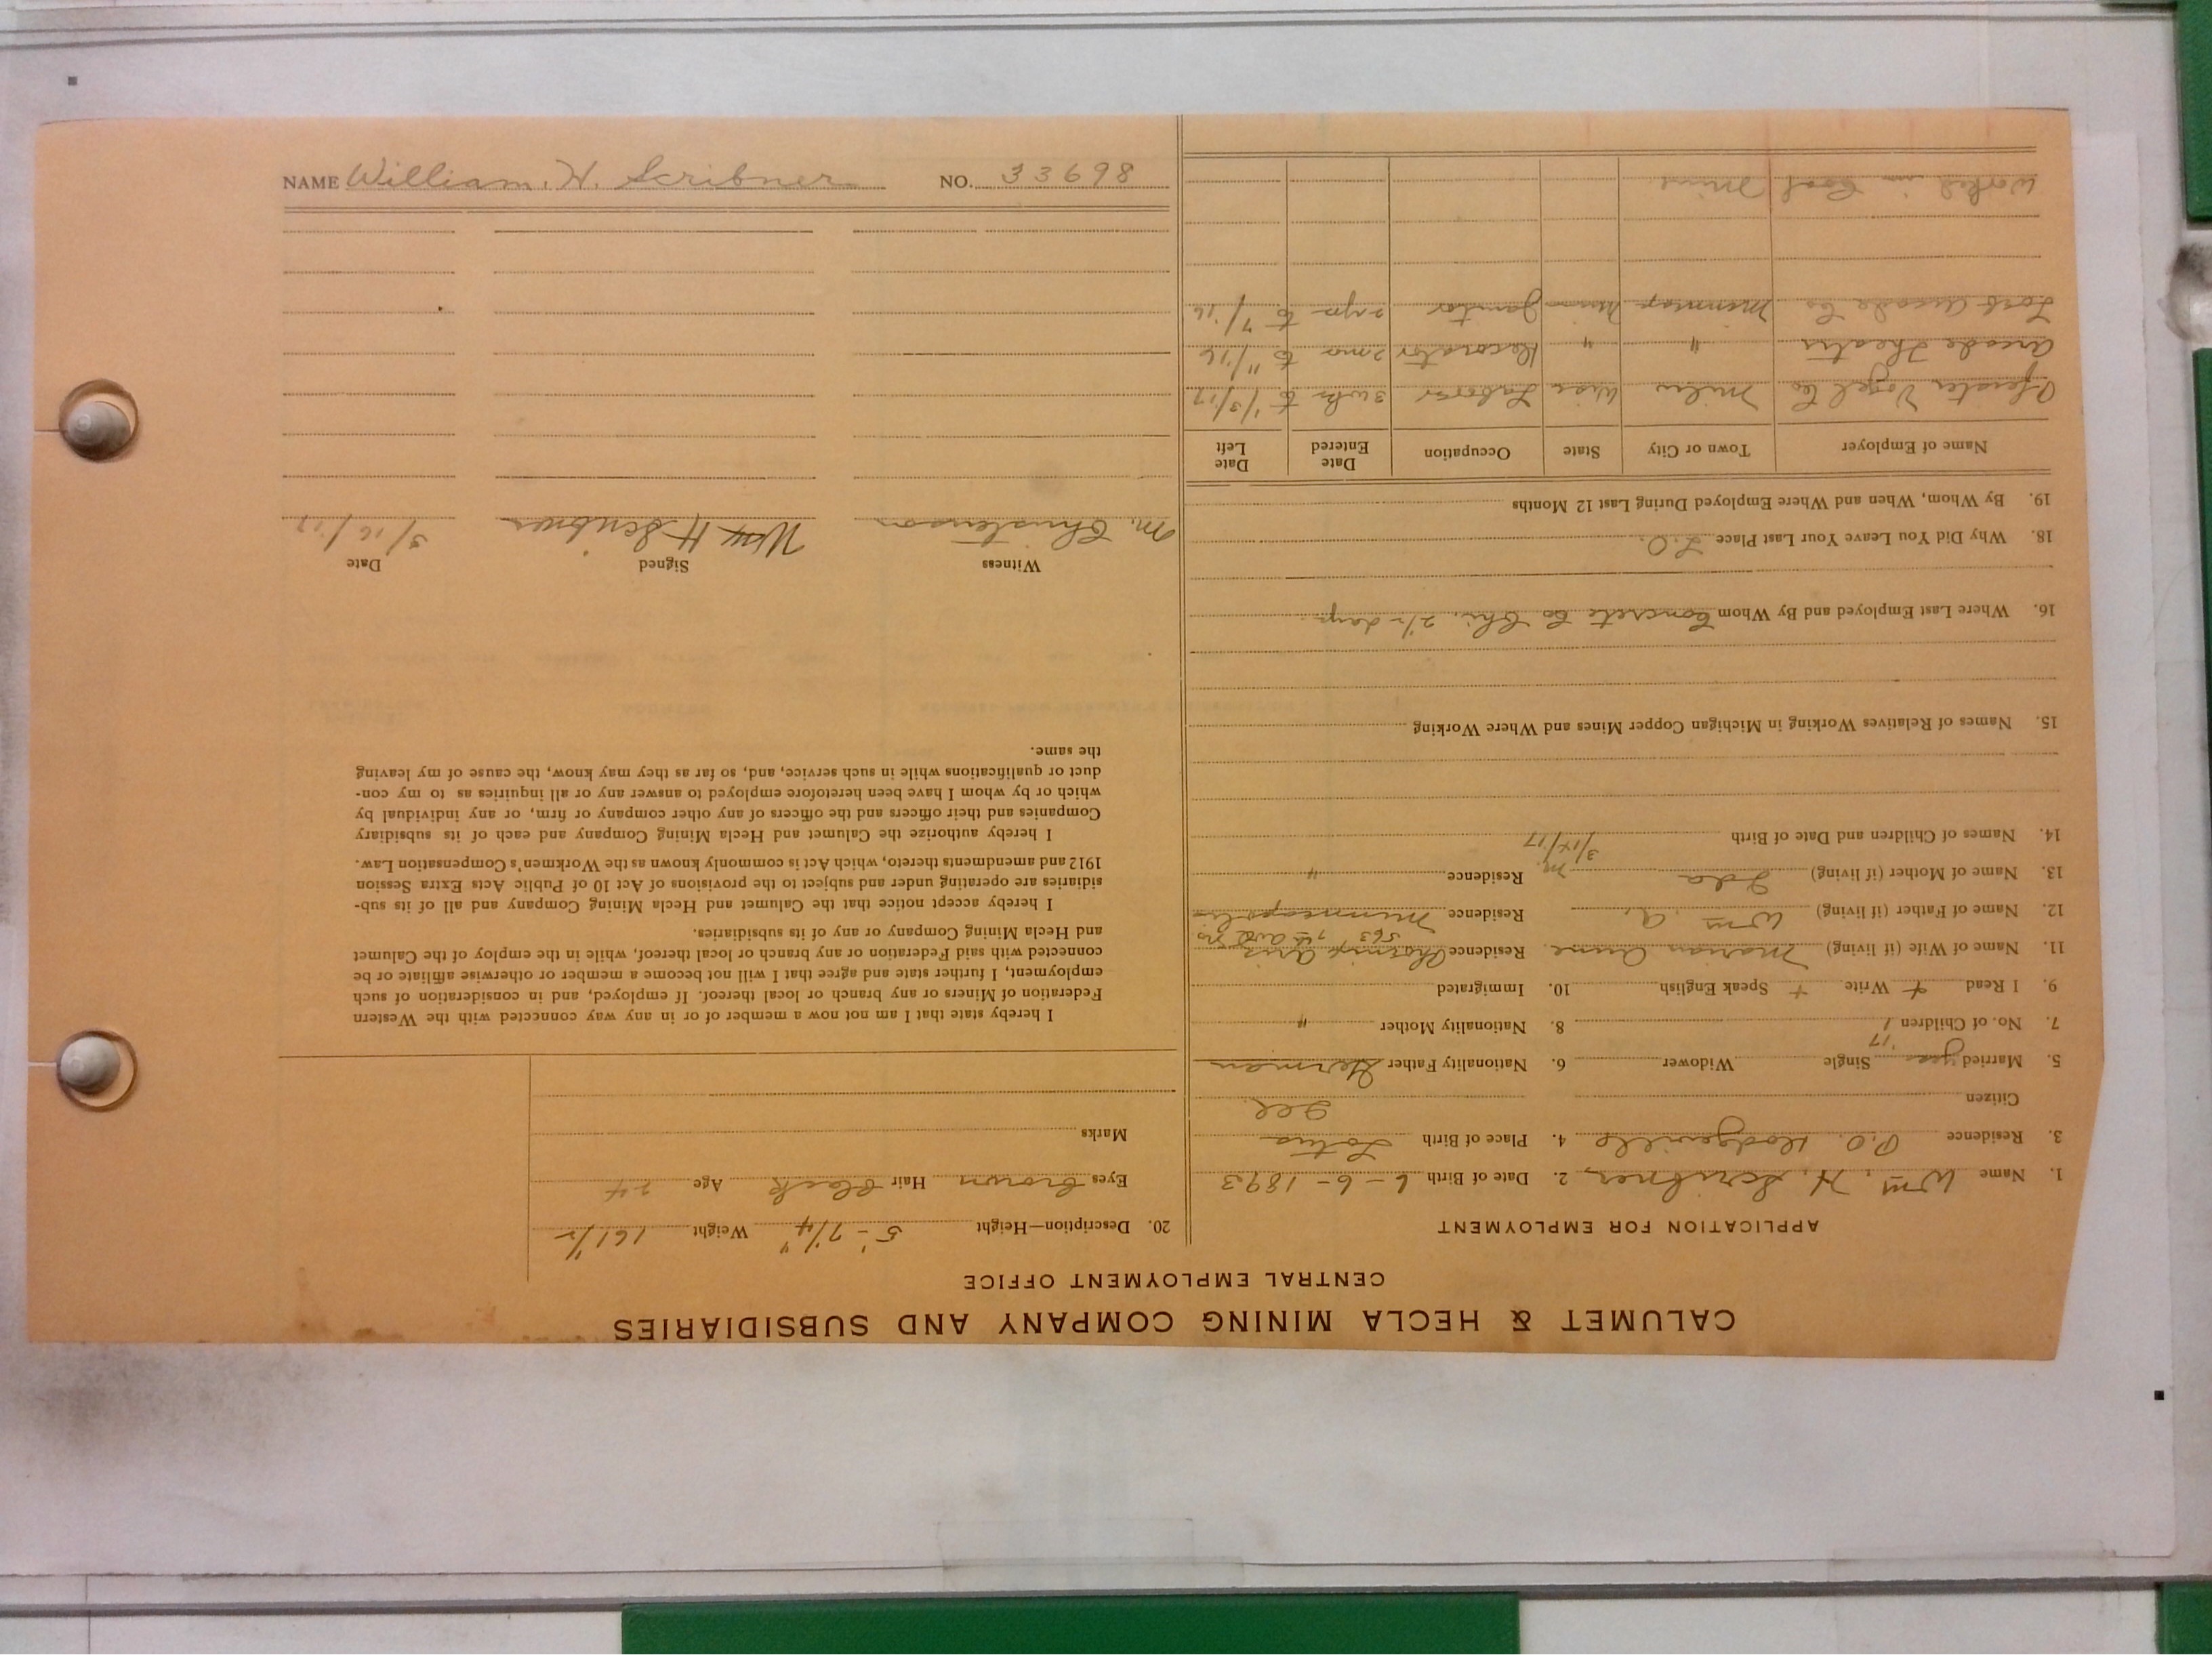 NAME William. H. Scribner NO. 33698
CALUMET & HECLA MINING COMPANY AND SUBSIDIARIES
CENTRAL EMPLOYMENT OFFICE
APPLICATION FOR EMPLOYMENT
1. Name Wm. H. Scribner 2. Date of Birth 6-6-1893
3. Residence P.O. 4. Place of Birth
Citizen Ill.
5. Married yes '17 Single Widower 6. Nationality Father German
7. No. of Children 1 8. Nationality Mother "
9. I Read + Write + Speak English 10. Immigrated
11. Name of Wife (if living) Marian Anne Residence Phoenix Ariz 563 7th
12. Name of Father (if living) Wm A. Residence Minneapolis
13. Name of Mother (if living) Ida M. Residence "
14. Names of Children and Date of Birth
15. Names of Relatives Working in Michigan Copper Mines and Where Working
16. Where Last Employed and By Whom Concrete Co Chi. 2 1/2 days
18. Why Did You Leave Your Last Place L.O.
19. By Whom, When and Where Employed During Last 12 Months
Name of Employer Town or City State Occupation Date Entered Date Left
Pfister Vogel Co Milw Wisc Laborer 3 wks to 1/3/17
Arcade Theatre " " Decorator 2 mo to 11/16
Arcade Co Janitor 2 yrs to 7/16
Worked in Coal Mine
20. Description—Height 5'-7 1/4" Weight 161 1/2
Eyes Brown Hair Black Age 24
Marks
I hereby state that I am not now a member of or in any way connected with the Western
Federation of Miners or any branch or local thereof. If employed, and in consideration of such
employment, I further state and agree that I will not become a member or otherwise affiliate or be
connected with said Federation or any branch or local thereof, while in the employ of the Calumet
and Hecla Mining Company or any of its subsidiaries.
I hereby accept notice that the Calumet and Hecla Mining Company and all of its sub-
sidiaries are operating under and subject to the provisions of Act 10 of Public Acts Extra Session
1912 and amendments thereto, which Act is commonly known as the Workmen's Compensation Law.
I hereby authorize the Calumet and Hecla Mining Company and each of its subsidiary
Companies and their officers and the officers of any other company or firm, or any individual by
which or by whom I have been heretofore employed to answer any or all inquiries as to my con-
duct or qualifications while in such service, and, so far as they may know, the cause of my leaving
the same.
Witness Signed Date
M. Christenson Wm H Scribner 3/16/17